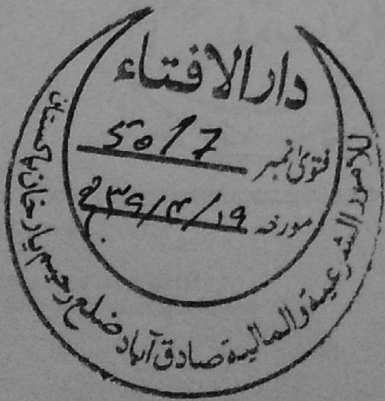 دارالافتاء
فتویٰ نمبر 50/7
مورخہ ۱۹/۴/۳۹ھ
للامور الشرعیة والمالیة صادق آباد ضلع رحیم یار خان پاکستان